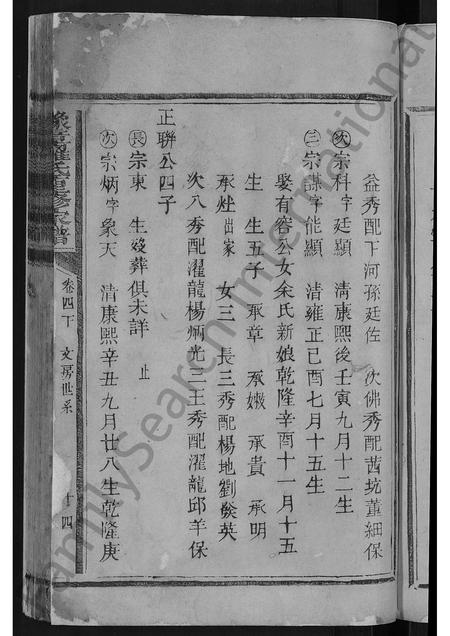 益秀配下河孫廷佐 次佛秀配茜坑董細保
次宗科字廷顯 清康熙後壬寅九月十二生
三宗謀字能顯 清雍正己酉七月十五生
娶有容公女余氏新娘乾隆辛酉十一月十五
生 生五子 承章 承嫩 承貴 承明
承烓出家 女三 長三秀配楊地劉癸英
次八秀配濯龍楊炳光二王秀配濯龍邱羊保
正聯公四子
長宗東 生殁葬俱未詳 止
次宗炳字象天 清康熙辛丑九月廿八生乾隆庚
豫章羅氏重修家譜
卷四下 文房世系 十四
FamilySearch International